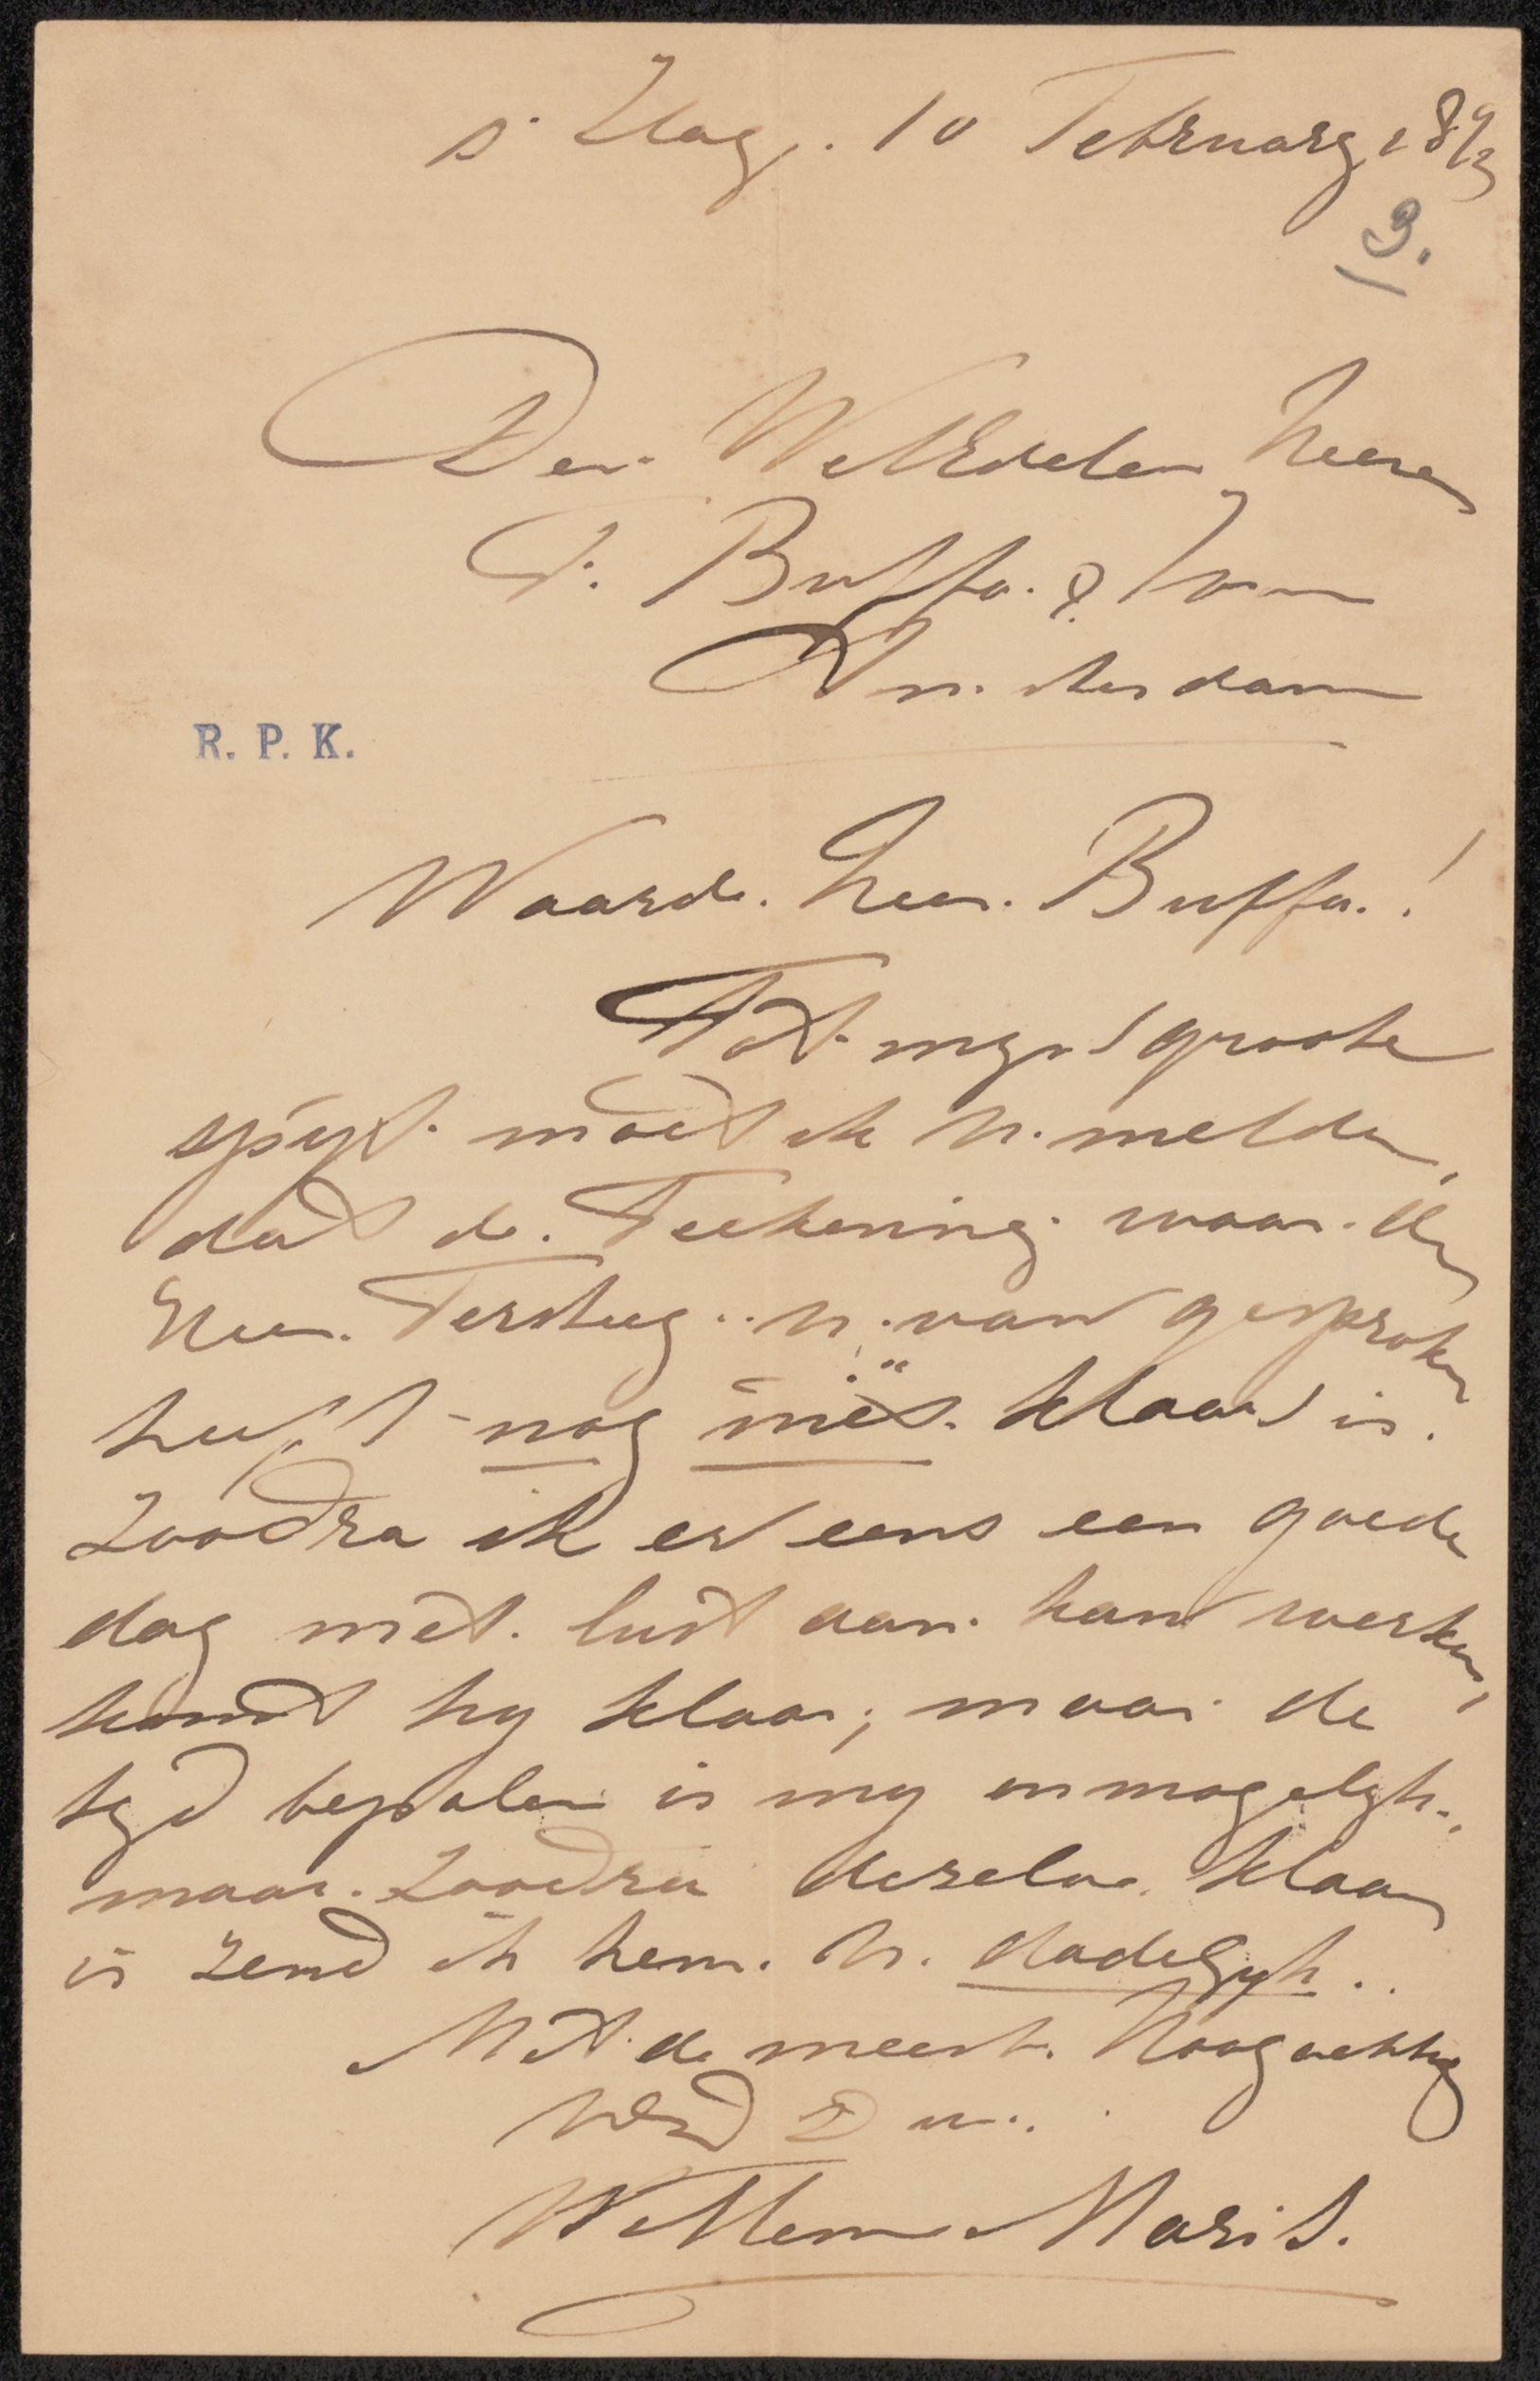 s' Hag. 10 February 1893
3.
Den WelEdelen heeren
F. Buffa. & Zonen
Amsterdam
R. P. K.
Waarde. heer. Buffa.!
Tot. myn groote
spyt. moet ik U. melden,
dat de. Teekening. waar. de
heer. Tersteeg.. U. van gesproken
heeft nog niet. klaar is.
Zoodra ik er eens een goede
dag met. lust aan. kan werken,
komt hy klaar; maar de
tyd bepalen is my onmogelyk.,
maar. Zoodra dezelve. klaar
is zend ik hem. U. dadelyk..
Met. de meest. Hoogachting
UEd D w..
Willem Maris.